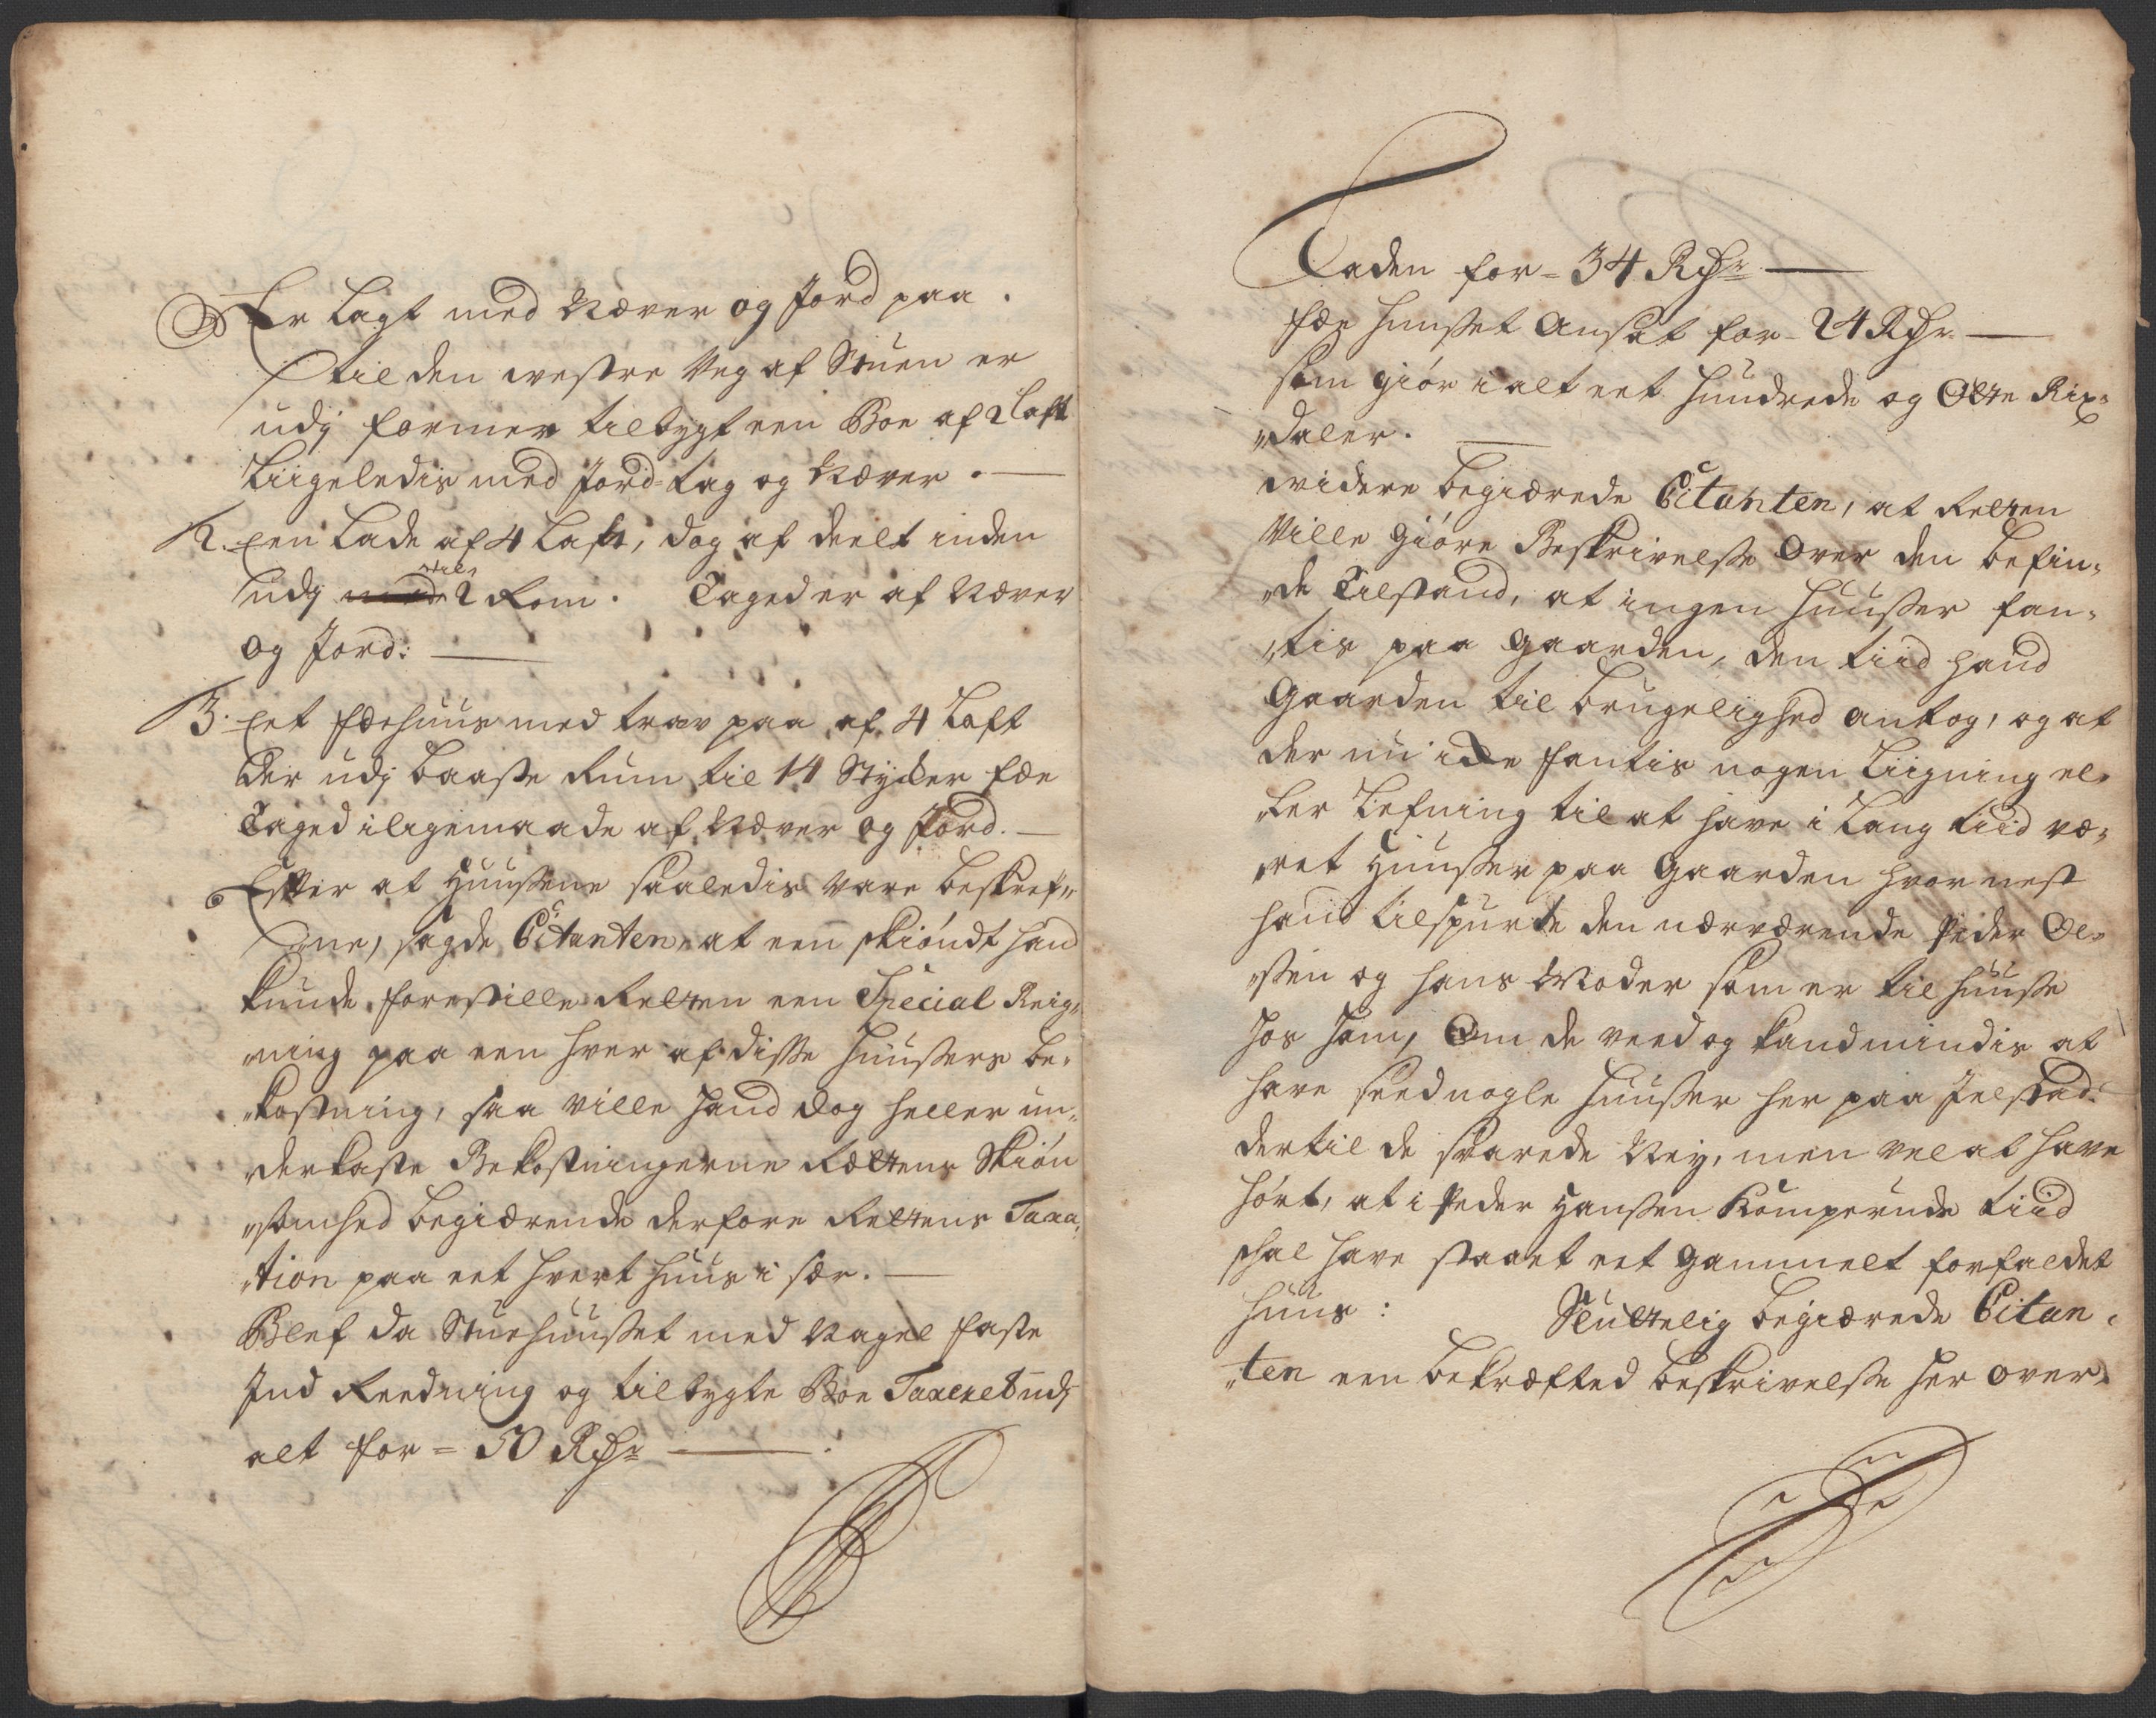 Er Lagt med Næver og Jord paa.
til den westre Veg af Stuen er
udj former tilbygt een Boe af 2 Laft
Liigeledis med Jord-tag og Næver.
2. Een Lade af 4 Laft, dog af deelt inden
udj til 2 Rom. Taged er af Næver
og Jord:
3. Eet fæehuus med trav paa af 4 Laft
der udj Baasse Rum til 14 Stycker fæe
Taged iligemaade af Næver og Jord.
Efter at Huussene saaledis vare beskref„
„ne, sagde Citanten, at een skiöndt hand
kunde forestille Retten een Special Reig„
„ning paa een hver af disse Huussers be„
„kostning, saa ville hand dog heller un„
„derkaste Bekostningerne Rættens Skiön
„somhed begiærende derfore Rettens Taxa„
„tion paa eet hvert huus i sær.
Blef da Stuehuusset med Nagel faste
Ind Reedning og tilbygte Boe Taxeret udj
alt for = 50 Rdr
Laden for = 34 Rdr
fæe huusset Ansat for = 24 Rdr
som giör i alt eet hundrede og Otte Rix„
„daler.
widere begiærede Citanten, at Retten
Ville giöre Beskrivelse Over den befin„
„de Tilstand, at ingen huusser fan„
„tis paa gaarden, den tiid hand
Gaarden til brugelighed antog, og at
der nu icke fantis nogen Liigning el„
„ler Lefning til at have i Lang tiid væ„
„ret Huusser paa Gaarden hvor nest
hand tilspurte den nærværende Peder Ol„
„ssen og hans Moder som er til huusse
hos ham, Om de veed og kand mindis at
have seed nogle huusser her paa Jelstad.
dertil de svarede Ney, men vel at have
hört, at i Peder Hanssen Komperuds tiid
skal have staaet eet gammelt forfaldet
huus: Sluttelig begiærede Citan„
„ten een bekræfted beskrivelse her over.